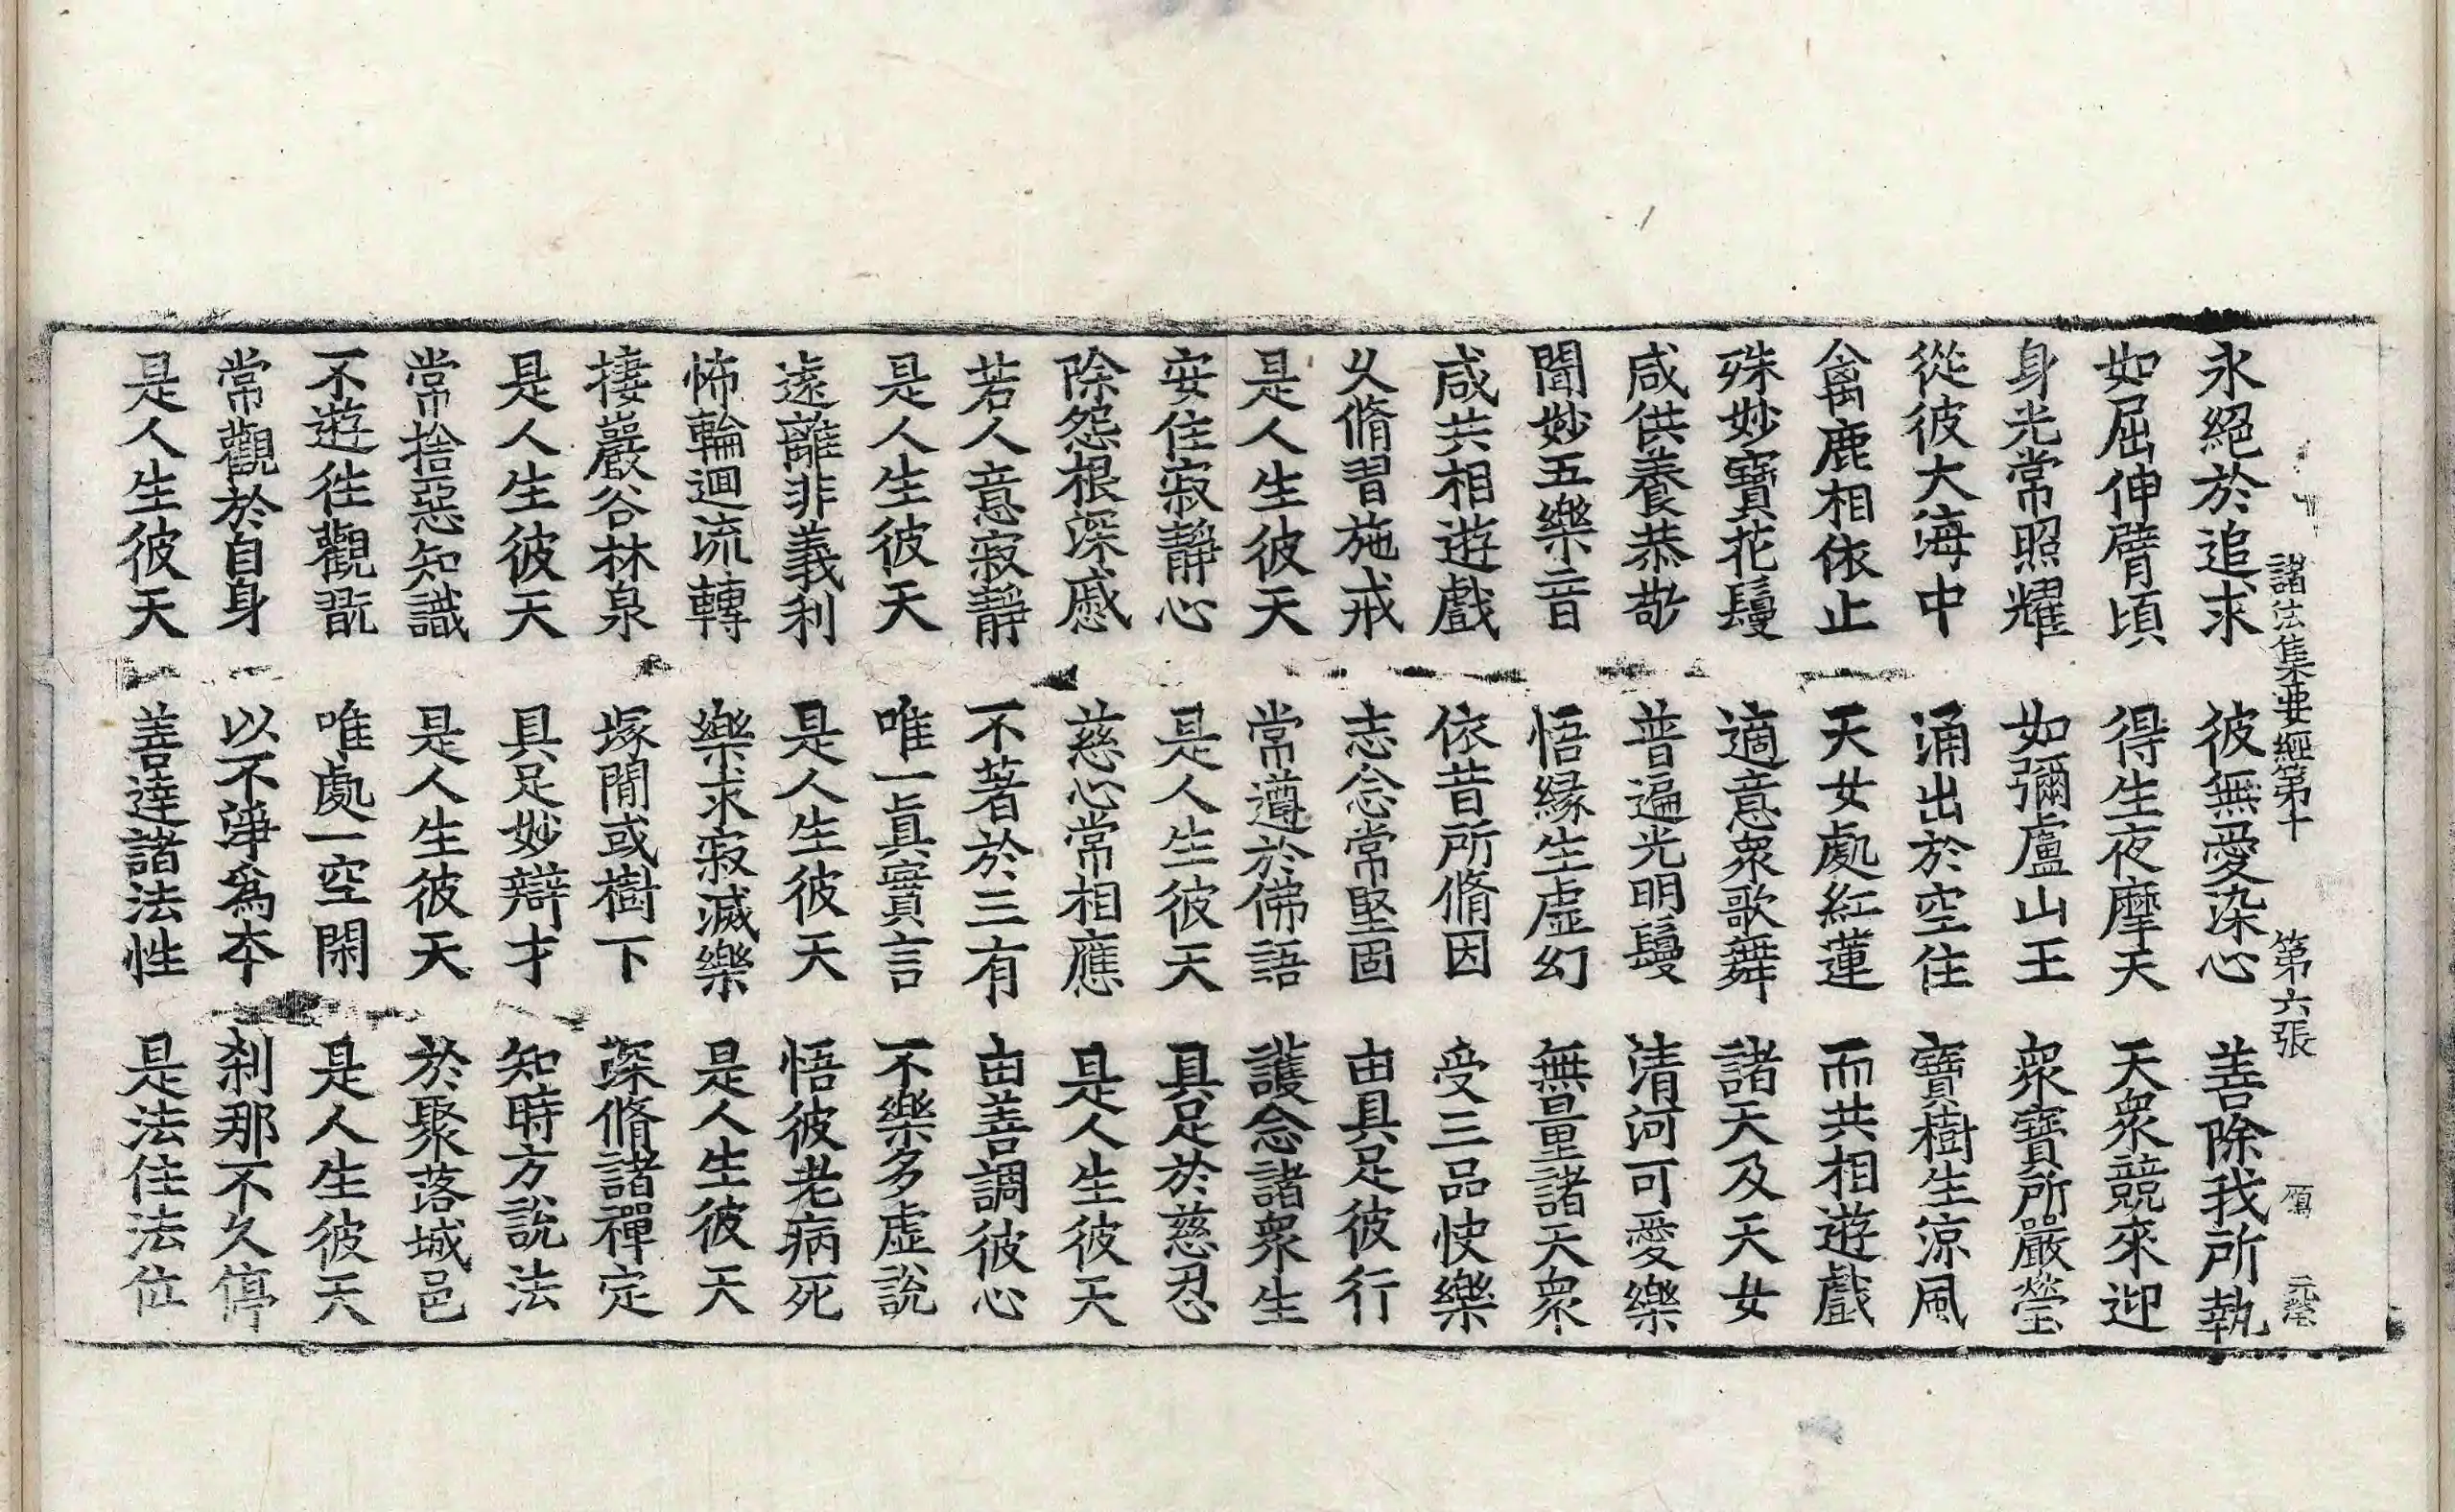 諸法集要經第十　第六張　雁　元卷
永絕於追求　彼無愛染心　善除我所執
如屈伸臂頃　得生夜摩天　天衆競來迎
身光常照耀　如彌盧山王　衆寶所嚴瑩
從彼大海中　涌出於空住　寶樹生涼風
禽鹿相依止　天女處紅蓮　而共相遊戲
殊妙寶花鬘　適意衆歌舞　諸天及天女
咸供養恭敬　普遍光明鬘　清河可愛樂
聞妙五樂音　悟緣生虛幻　無量諸天衆
咸共相遊戲　依昔所脩因　受三品快樂
久脩習施戒　志念常堅固　由具足彼行
是人生彼天　常遵於佛語　護念諸衆生
安住寂靜心　是人生彼天　具足於慈忍
除怨根深慼　慈心常相應　是人生彼天
若人意寂靜　不著於三有　由善調彼心
是人生彼天　唯一眞實言　不樂多虛說
遠離非義利　是人生彼天　悟彼老病死
怖輪迴流轉　樂求寂滅樂　是人生彼天
捿巖谷林泉　塚閒或樹下　深脩諸禪定
是人生彼天　具足妙辯才　知時方說法
常捨惡知識　是人生彼天　於聚落城邑
不遊徃觀翫　唯處一空閑　是人生彼天
常觀於自身　以不淨爲本　刹那不久停
是人生彼天　善達諸法性　是法住法位